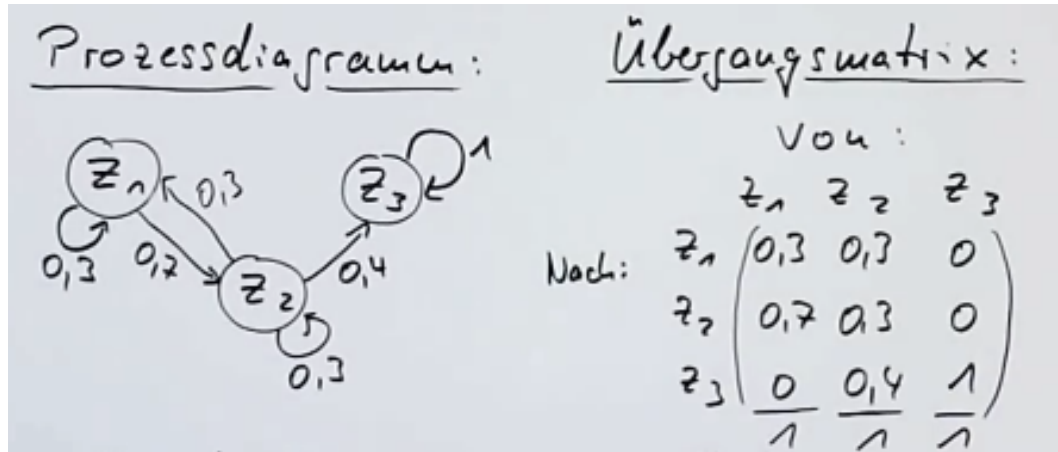 Prozessdiagramm:
z₁
0,3
0,7
0,3
z₂
0,3
0,4
z₃
1
Übergangsmatrix:
Von:
z₁ z₂ z₃
Nach:
z₁ 0,3 0,3 0
z₂ 0,7 0,3 0
z₃ 0 0,4 1
1 1 1